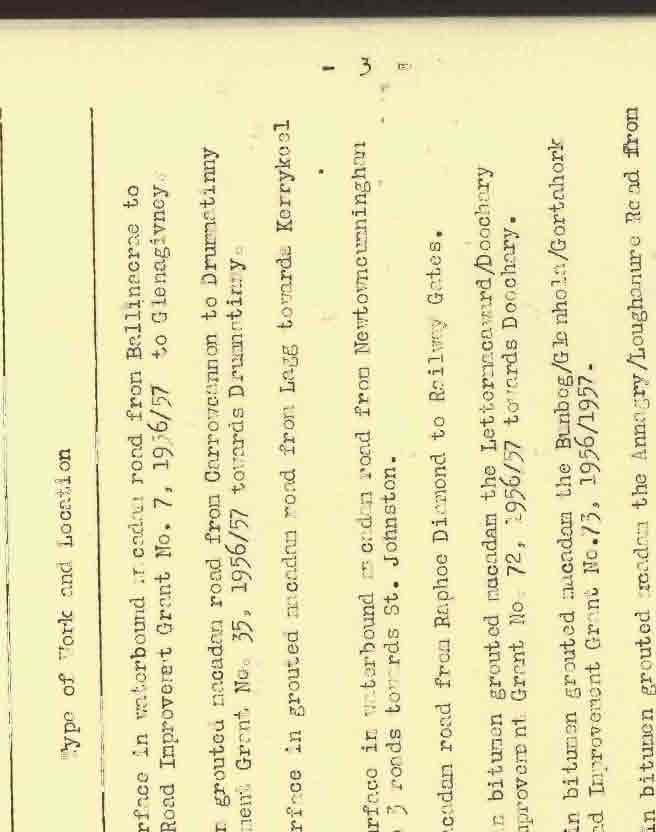 - 3 -
Type of Work and Location
rface in waterbound macadam road from Ballinacrae to
Road Improvement Grant No. 7, 1956/57 to Glenagivney.
n grouted macadam road from Carrowcannon to Drumnatinny
ment Grant No. 35, 1956/57 towards Drumnatinny.
rface in grouted macadam road from Lagg towards Kerrykeel
urface in waterbound macadam road from Newtowncunninghan
3 roads towards St. Johnston.
cadam road from Raphoe Diamond to Railway Gates.
n bitumen grouted macadam the Lettermacaward/Doochary
mprovement Grant No. 72, 1956/57 towards Doochary.
in bitumen grouted macadam the Bunbeg/Glenhola/Gortahork
d Improvement Grant No.73, 1956/1957.
in bitumen grouted macadam the Annagry/Loughanure Road from